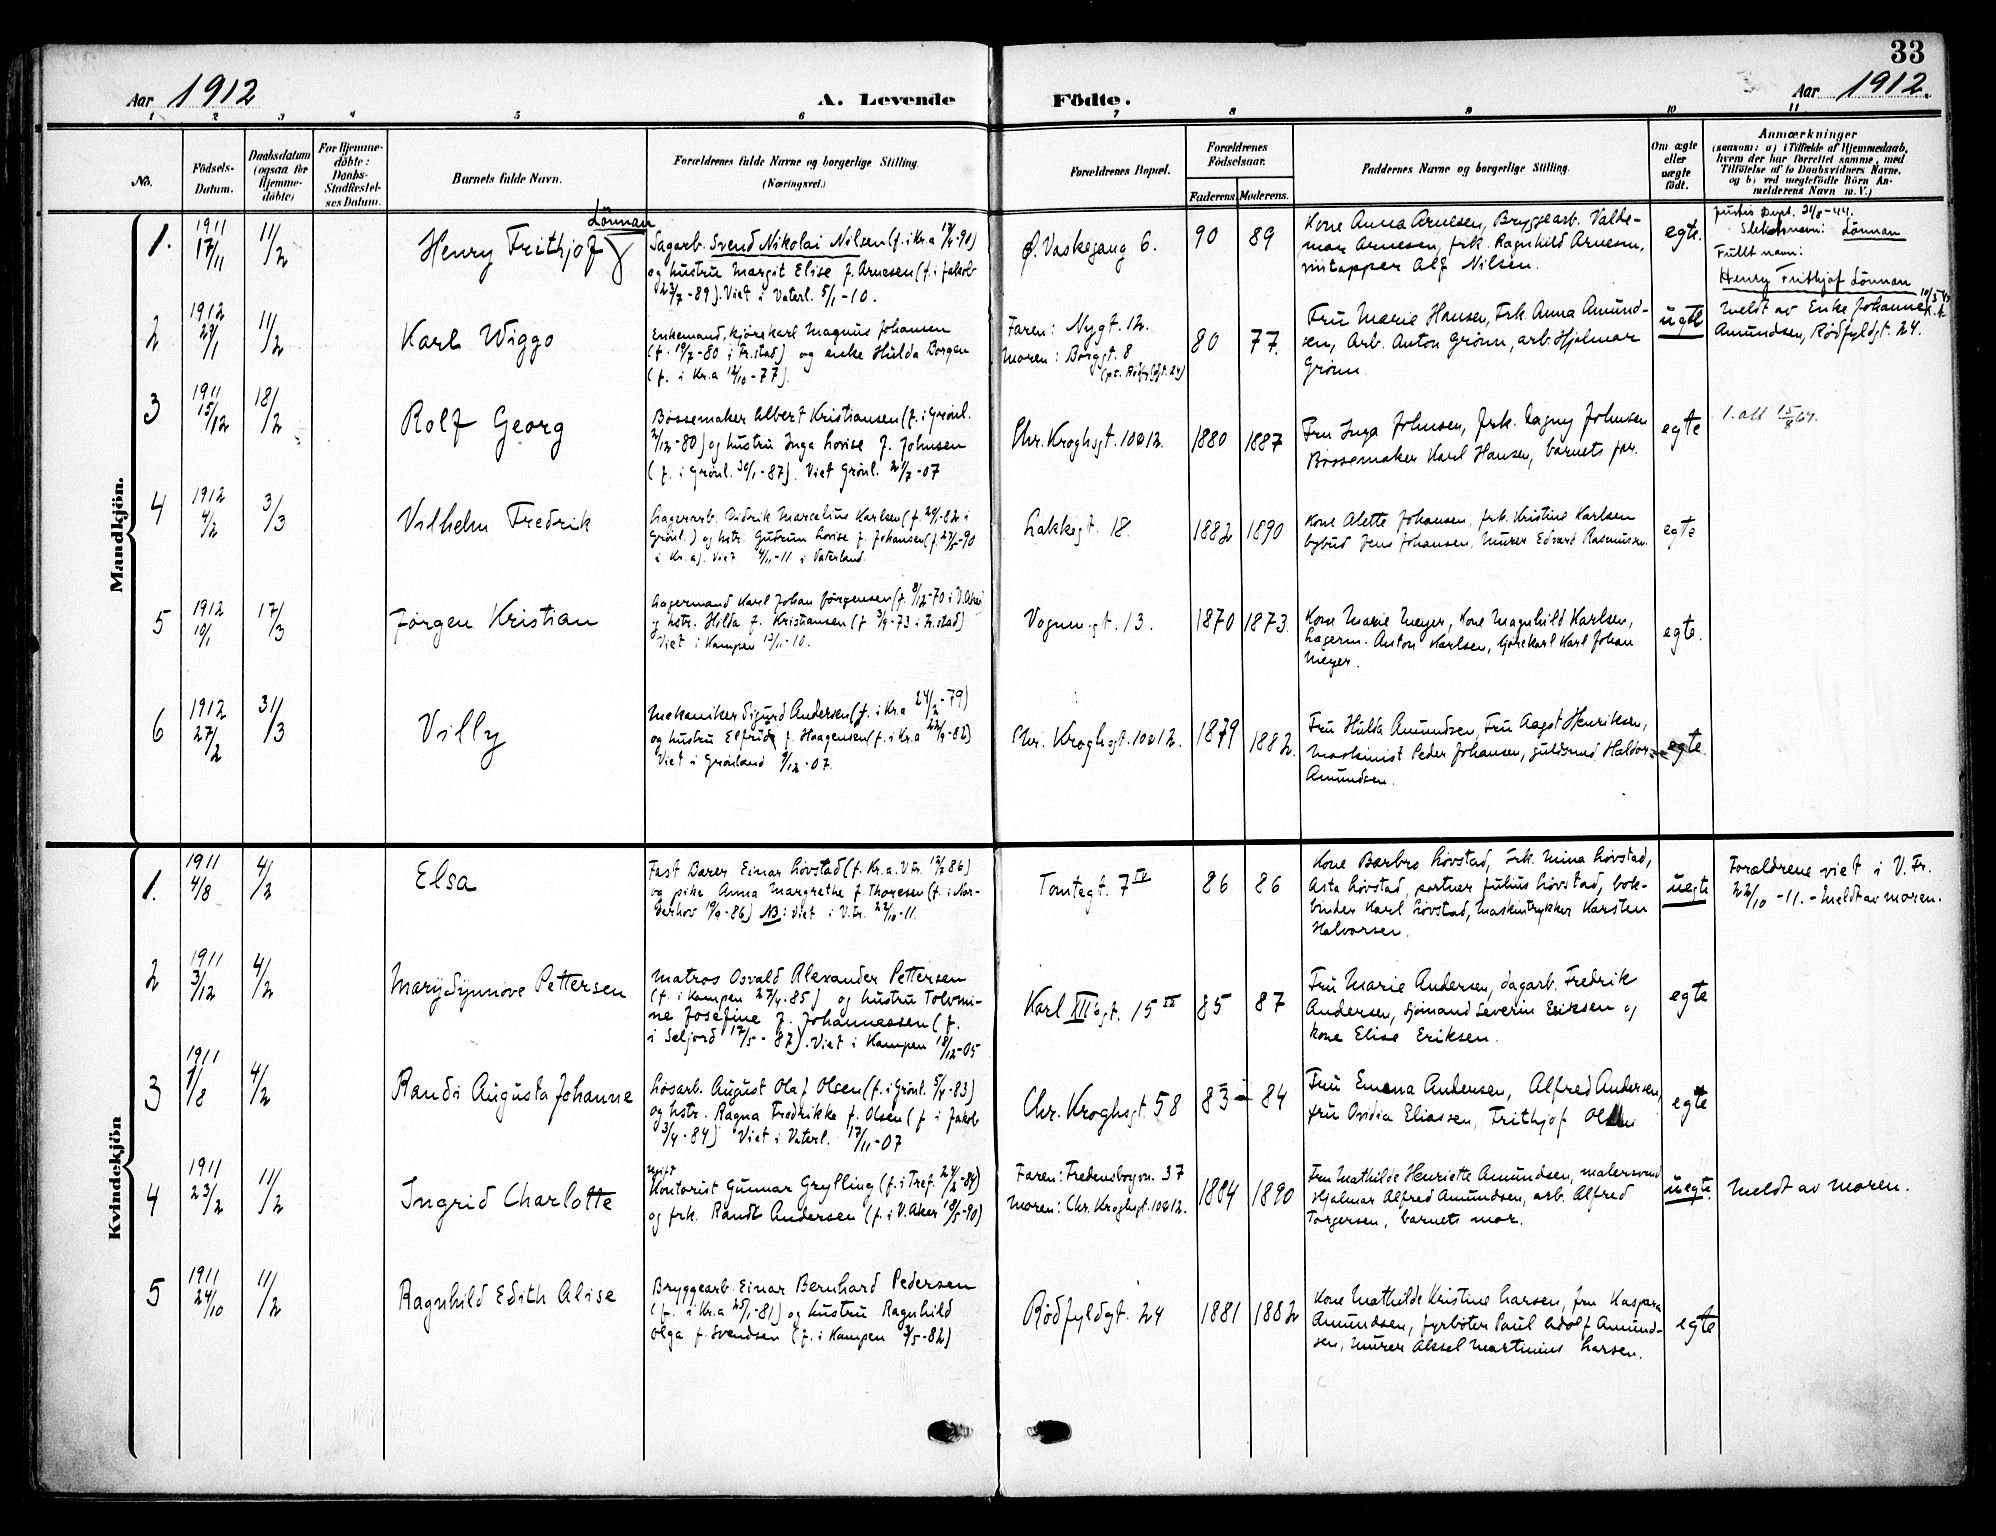 33
Aar 1912
A. Levende
Födte.
Aar 1912.
1 2 3 4 5 6 7 8 9 10 11
No.
Födsels-
Datum.
Daabsdatum
(ogsaa for
Hjemme-
döbte)
For Hjemme-
döbte:
Daabs-
Stadfæstel-
ses Datum.
Barnets fulde Navn.
Forældrenes fulde Navne og borgerlige Stilling.
(Næringsvei.)
Forældrenes Bopæl.
Forældrenes
Födselsaar.
Faderens.
Moderens.
Faddernes Navne og borgerlige Stilling.
Om ægte
eller
uægte
født.
Anmærkninger
(saasom: a) i Tilfælde af Hjemmedaab,
hvem der har forrettet samme, med
Tilföielse af to Daabsvidners Navne.
og b) ved uægtefödte Börn An-
melderens Navn m. V.)
Mandkjön.
1.
1911
17/11
11/2
Lönnan
Henry Frithjof
Sagarb. Svend Nikolai Nilsen (f. i Kr.a 17/4-90)
og hustru Margit Elise f. Arnesen (f. i Jakob
23/7-89). Viet i Vaterl. 5/1-10.
Ø. Vaskegang 6.
90
89
Kone Anna Arnesen, Bryggearb. Valde-
mar Arnesen, frk. Ragnhild Arnesen,
vintapper Alf Nilsen.
egte.
Justis Dept. 21/8-44.
Slektsnavn: Lönnan
Fullt navn:
Henry Frithjof Lönnan
2
1912
29/1
11/2
Karl Wiggo
Enkemand, kjørekarl Magnus Johansen
(f. 19/2-80 i Fr.stad) og enke Hulda Borgen
(f. i Kr.a 12/10-77).
Faren: Nygt. 12.
Moren: Borggt. 8
(pt. Rødfyldgt. 24)
80
77.
Fru Marie Hansen, Frk. Anna Amund-
sen, Arb. Anton Grønn, arb. Hjalmar
Grønn.
uegte
Meldt av Enke Johanne
Amundsen, Rødfyldgt. 24.
3
1911
15/12
18/2
Rolf Georg
Bøssemaker Albert Kristiansen (f. i Grønl.
2/12-80) og hustru Inga Lovise f. Johnsen
(f. i Grønl. 30/1-87). Viet Grønl. 21/7-07
Chr. Kroghsgt. 10012.
1880
1887
Fru Inga Johnsen, frk. Dagny Johnsen
Bøssemaker Karl Hansen, barnets far.
egte
1. att 15/8 64.
4
1912
4/2
3/3
Vilhelm Fredrik
Lagerarb. Didrik Marcelius Karlsen (f. 29/1-82 i
Grønl.) og hstr. Gudrun Lovise f. Johansen (f. 27/5-90
i Kr.a). Viet 4/11-11 i Vaterland.
Lakkegt. 18.
1882
1890
Kone Alette Johansen, frk. Kristine Karlsen
bybud Jens Johansen, Murer Edvard Rasmussen.
egte
5
1912
10/1
17/3
Jørgen Kristian
Lagermand Karl Johan Jørgensen (f. 8/12-70 i V. Aker)
og hstr. Hilda f. Kristiansen (f. 3/9-73 i Fr.stad)
Viet i Kampen 13/11-10.
Vognmgt. 13.
1870
1873.
Kone Marie Meyer, Kone Magnhild Karlsen,
Lagerm. Anton Karlsen, kjørekarl Karl Johan
Meyer.
egte.
6
1912
27/2
31/3
Villy
Mekaniker Sigurd Andersen (f. i Kr.a 24/2-79)
og hustru Elfrida f. Haagensen (f. i Kr.a 22/9-82)
Viet i Grønland 8/12-07.
Chr. Kroghsgt. 10012.
1879
1882.
Fru Hulda Amundsen, Fru Aagot Henriksen,
Maskinist Peder Johansen, guldsmed Haldor
Amundsen.
egte.
Kvindekjön
1.
1911
4/8
4/2
Elsa
Fast Bærer Einar Løvstad (f. Kr.a. V. Fr. 12/2 86)
og pike Anna Margrethe f. Thoresen (f. i Nor-
derhov 10/9-86) NB: viet i V. Fr. 22/10-11.
Tomtegt. 7 IV
86
86
Kone Barbro Løvstad, Frk. Mina Løvstad,
Asta Løvstad, portner Julius Løvstad, bok-
binder Karl Løvstad, Maskintrykker Karsten
Halvorsen.
uegte
Forældrene viet i V. Fr.
22/10-11. - Meldt av moren.
2
1911
3/12
4/2
Mary Synnøve Pettersen
Matros Osvald Alexander Pettersen
(f. i Kampen 27/4-85) og hustru Tolvmi-
ne Josefine f. Johannessen (f.
i Seljord 17/5-87). Viet i Kampen 18/12-05
Karl XII's gt. 15 IV
85
87
Fru Marie Andersen, dagarb. Fredrik
Andersen, sjømand Severin Eriksen og
kone Elise Eriksen.
egte
3
1911
1/8
4/2
Randi Augusta Johanne
Løsarb. August Olaf Olsen (f. i Grønl. 5/4-83)
og hstr. Ragna Fredrikke f. Olsen (f. i Jakob
3/4-84) Viet i Vaterl. 17/11-07
Chr. Kroghsgt. 58
83
84
Fru Emma Andersen, Alfred Andersen,
fru Ovidia Eliassen, Frithjof Olsen
egte
4
1911
23/2
11/2
Ingrid Charlotte
ugift
Kontorist Gunnar Grylling (f. i Tref. 24/2-84)
og frk. Randi Andersen (f. i V. Aker 10/5-90)
Faren: Fredensborgvn. 37
Moren: Chr. Kroghsgt. 10012.
1884
1890
Fru Mathilde Henriette Amundsen, malersvend
Hjalmar Alfred Amundsen, arb. Alfred
Torgersen, barnets mor.
uegte.
Meldt av moren.
5
1911
24/10
11/2
Ragnhild Edith Alise
Bryggearb. Einar Bernhard Pedersen
(f. i Kr.a 25/1-81) og hustru Ragnhild
Olga f. Svendsen (f. i Kampen 3/5-82)
Rødfyldgt. 24
1881
1882
Kone Mathilde Kristine Larsen, fru Kaspara
Amundsen, fyrbøter Paul Adolf Amund-
sen, Murer Aksel Martinius Larsen.
egte